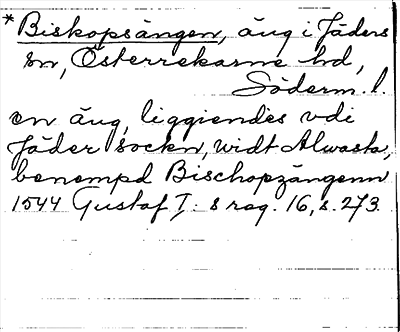 *Biskopsängen, äng i Jäders
sn, Österrekarne hd,
Söderm. l.
en äng liggiendes vdi
Jäder sockn, widt Alwasta,
benempd Bischopzängenn
1544 Gustaf I:s reg. 16, s. 273.